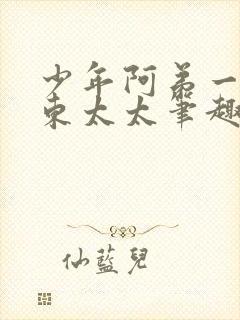 少年阿弟一
东太太笔趣
仙蓝儿